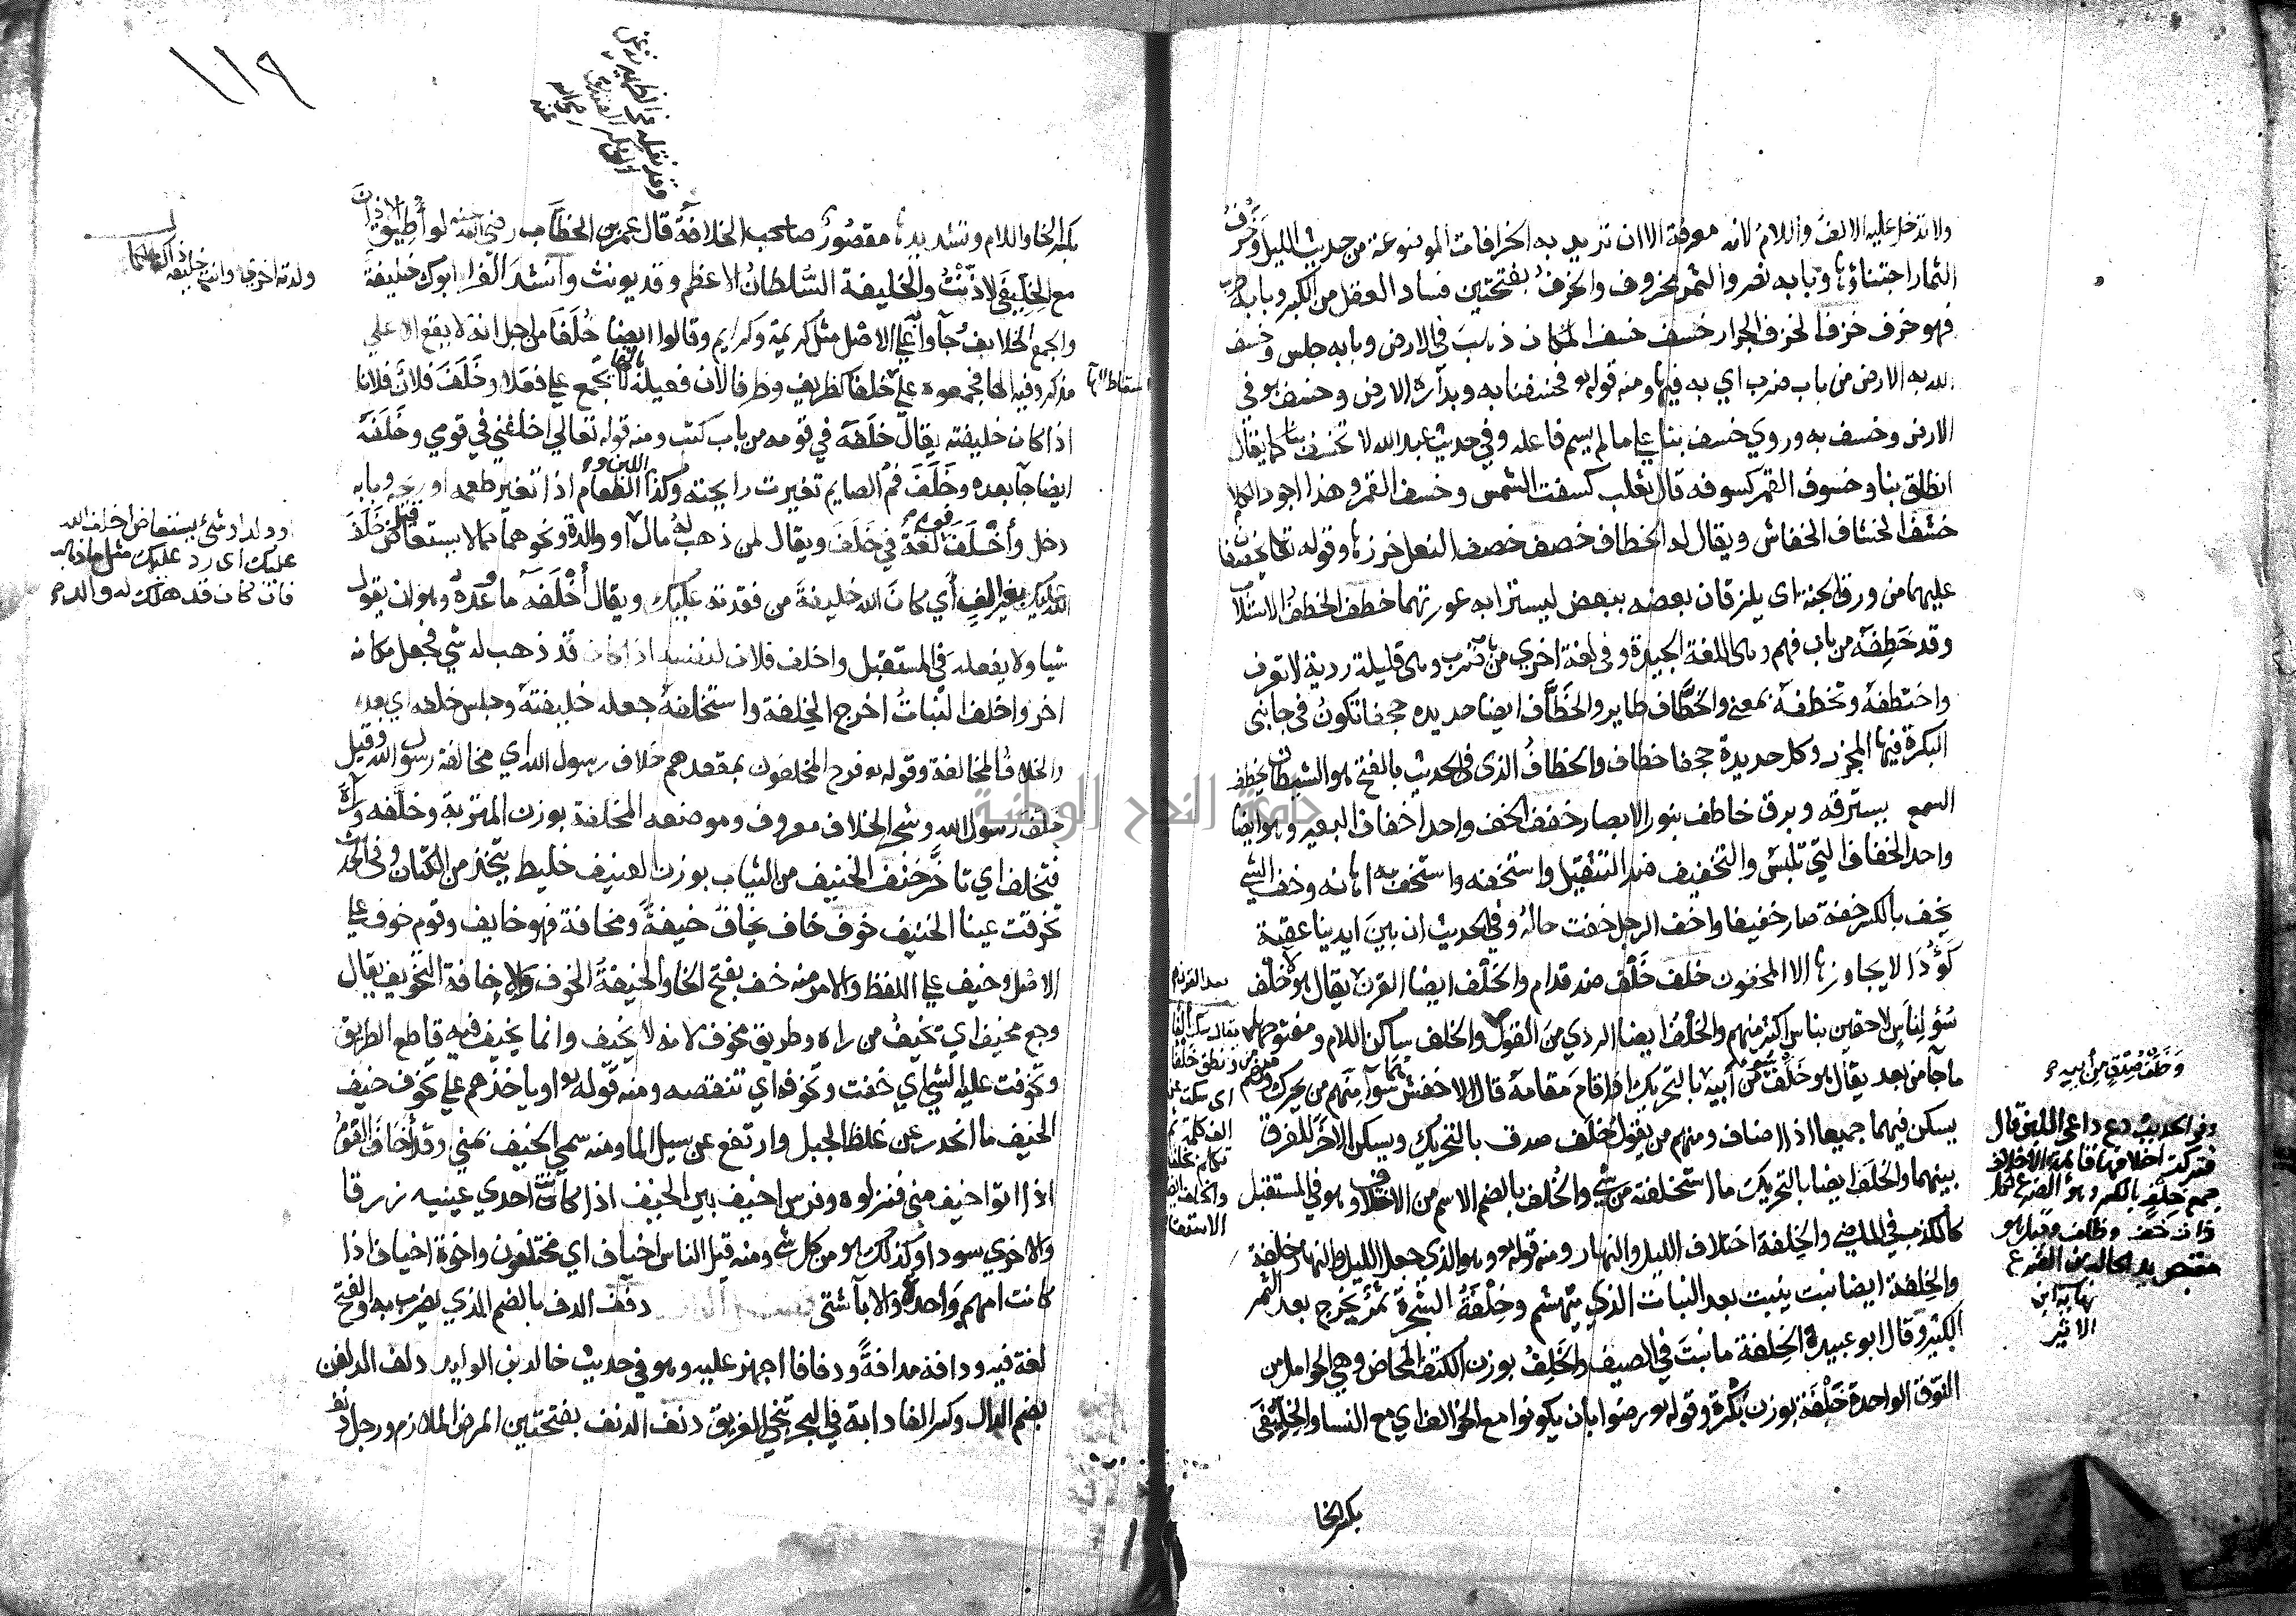 ولا تدخل عليه الالف واللام لانه معرفة الا ان تريد به الخرافات الموضوعة من حديث الليل وخُرف
الثمار اجتناؤها وبابه نصر والثمر مخروف والخَرَف بفتحتين فساد العقل من الكبر وبابه طرب
فهو خرف خزف الخزف الجرار خسف خسف المكان ذهب في الارض وبابه جلس وخسف
الله به الارض من باب ضرب اي به فيها ومنه قوله تع فخسفنا به وبداره الارض وخسف هو في
الارض وخسف به وروي خسف بنا على ما لم يسم فاعله وفي حديث عبد الله لا نخسف بنا كما يقال
انطلق بنا وخسوف القمر كسوفه قال ثعلب كسفت الشمس وخسف القمر وهذا اجود الكلام
خشف الخشاف الخفاش ويقال له الخطاف خصف خصف النعل خرزها وقوله تعا يخصفان
عليهما من ورق الجنة اي يلزقان بعضه ببعض ليسترا به عورتهما خطف الخطف الاستلاب
وقد خَطِفَه من باب فهم وهي اللغة الجيدة وفي لغة اخرى من باب ضرب وهي قليلة ردية لا تعرف
واختطفه وتخطفه بمعنى والخُطَّاف طاير والخُطَّاف ايضا حديده حجفا تكون في جانبي
البكرة فيها المحور وكل حديدة حجفا خطاف والخطاف الذي في الحديث بالفتح هو الشيطان يخطف
السمع يسترقه وبرق خاطف لنور الابصار خفف الخف واحد اخفاف البعير وهو ايضا
واحد الخفاف التي تلبس والتخفيف ضد التثقيل واستخفه واستخف به اهانه وخف الشي
يخف بالكسر خفة صار خفيفا واخف الرجل خفت حاله وفي الحديث ان بين ايدينا عقبة
كَؤُدًا لا يجاوزها الا المخفون خلف خَلْف ضد قدام والخَلْف ايضا القرن يقال هولا خلف
سُوْءٍ لِناس لاحقين بناس اكثر منهم والخَلْف ايضا الردي من القول والخلف ساكن اللام ومفتوحها
ما جآ من بعد يقال هو خَلْف سُوء من أبيه بالتحريك اذا قام مقامه قال الاخفش هما سوآ منهم من يحرك ومنهم من
يسكن فيهما جميعا اذا اضاف ومنهم من يقول خَلَف صدق بالتحريك ويسكن الاخر للفرق
بينهما والخَلَف ايضا بالتحريك ما استخلفته من شيء والخُلف بالضم الاسم من الاخلاف وهو في المستقبل
كالكذب في الماضي والخِلفة اختلاف الليل والنهار ومنه قوله تع وهو الذي جعل الليل والنهار خلفة
والخِلفة ايضا نبت ينبت بعد النبات الذي يتهشم وخِلْفَةُ الشجرة ثمر يخرج بعد الثمر
الكثير وقال ابو عبيدة الخِلفة ما نبت في الصيف والخَلِفُ بوزن الكتف المخاض وهي الحوامل من
النوق الواحدة خَلِفَة بوزن نَكِرة وقوله تع رضوا بان يكونوا مع الخوالف اي مع النسا والخِلِّيفَى
بكسر الخا
وَخَلَفُ صِدْقٍ مِن أبيه
وفي الحديث دع داعي اللبن قال
فتركت اخلافها قائمة الاخلاف
جمع خِلْفٍ بالكسر وهو الضرع لكل
ذات خف وظلف وقيل هو
مقبض يد الحالب من الضرع
نهاية ابن
الاثير
١١٩
بكسر الخا واللام وتشديدها مقصُورٌ صاحب الخلافة قال عمر بن الخطاب رضي الله عنه لو أُطِيقُ الاذان
مع الخِلِّيفَى لاذَّنْتُ والخليفة السُّلطانُ الاعظم وقد يونث وانشد الفرا ابوك خليفة
والجمع الخلايف جآوا على الاصل مثل كريمة وكرايم وقالوا ايضا خُلَفَا من اجل انه لا يقع الا على
مذكر وفيه الها فجمعوه على خلفا كظريف وظرفا لان فعيلة بالها لا تجمع على فعلا وخَلَفَ فلان فلانا
اذا كان خليفته يقال خَلَفَه في قومه من باب كتب ومنه قوله تعالى اخلفني في قومي وخَلَفَه
ايضا جآ بعده وخَلَفَ فم الصايم تغيرت رايحته وكذا اللبن والطعام اذا تغير طعمه او ريحه وبابه
دخل وأَخْلَفَ فوه لغةٌ في خَلَفَ ويقال لمن ذهب له مال او والدة ونحوهما مما لا يستعاض خَلَفَ
الله عليك بغير الف أي كان الله خليفةَ من فقدته عليك ويقال أَخْلَفَه ما وَعَدَهُ وهو ان يقول
شيا ولا يفعله في المستقبل واخلف فلان لنفسه اذا كان قد ذهب له شي فجعل مكانه
اخر واخلف النباتُ اخرج الخِلفة واستخلفه جعله خليفتَه وجلس خلفه اي بعده
والخلاف المخالفة وقوله تع فرح المخلفون بمقعدهم خلاف رسول الله اي مخالفة رسول الله وقيل
خلف رسول الله وشجر الخلاف معروف وموضعه المخلفة بوزن المتربة وخلَّفه ورآه
فتخلف اي تاخَّر خنف الخنيف من الثياب بوزن العنيف خليط يتخذ من الكتان وفي الحديث
تخرقت عنا الخنيف خوف خاف يخاف خيفةً ومخافة فهو خايف وقوم خوف على
الاصل وخيف على اللفظ والامر منه خف بفتح الخا والخيفةُ الخوف والاخافة التخويف يقال
وجع مخيف اي تخيفُ من راه وطريق مخوف لانه لا يخيف وانما يخيف فيه قاطع الطريق
وتخوفت عليه الشي اي خفت وتخوفه اي تنقصه ومنه قوله تع او ياخذهم على تخوف خيف
الخيف ما انحدر عن غلظ الجبل وارتفع عن مسيل الما ومنه سمي الخيف بمنى وقد أَخَافَ القومُ
اذا اتوا خيف منى فنزلوه وفرس اخيف بين الخيف اذا كانت احدي عينيه زرقا
والاخري سودا وكذلك هو من كل شي ومنه قيل الناس اخياف اي مختلفون واخوة اخياف اذا
كانت امهم واحدة والابآ شتى دفف الدف بالضم الذي يضرب به والفتح
لغة فيه ودافه مدافةً ودفافا اجهز عليه وهو في حديث خالد بن الوليد دلف الدلفين
بضم الدال وكسر الفا دابة في البحر تنجي الغريق دنف الدنف بفتحتين المرض الملازم ورجل دنف
او ولد او شئ يستعاض اخلف الله
عليك اى رد عليك مثل ما ذهب
فان كان قد هلك له والد